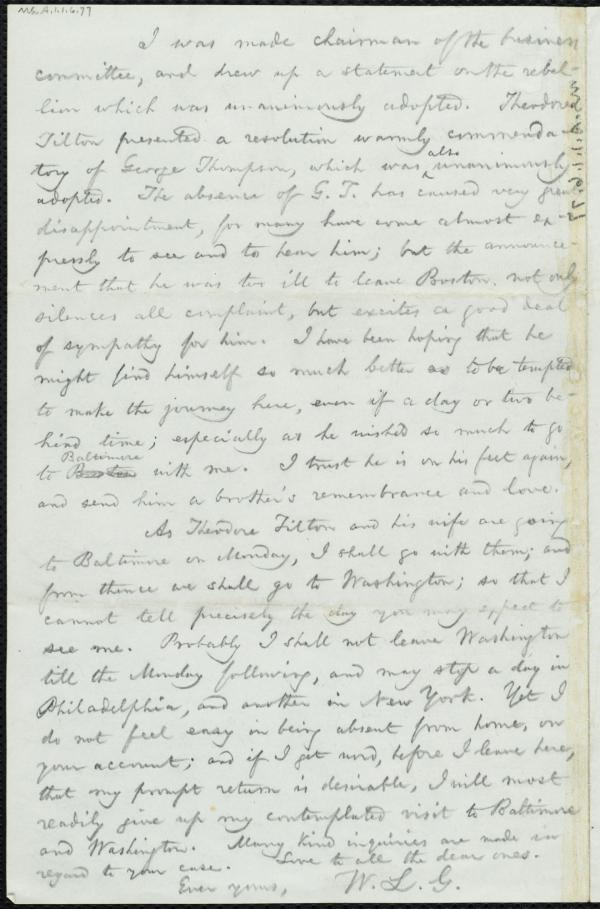 Ms.A.1.1.6.77
I was made chairman of the business
committee, and drew up a statement on the rebel-
lion which was unanimously adopted. Theodore
Tilton presented a resolution warmly commenda-
tory of George Thompson, which was also unanimously
adopted. The absence of G. T. has caused very great
disappointment, for many have come almost ex-
pressly to see and to hear him; but the announce-
ment that he was too ill to leave Boston, not only
silences all complaint, but excites a good deal
of sympathy for him. I have been hoping that he
might find himself so much better as to be tempted
to make the journey here, even if a day or two be-
hind time; especially as he wished so much to go
to Boston Baltimore with me. I trust he is on his feet again,
and send him a brother's remembrance and love.
As Theodore Tilton and his wife are going
to Baltimore on Monday, I shall go with them; and
from thence we shall go to Washington; so that I
cannot tell precisely the day you may expect to
see me. Probably I shall not leave Washington
till the Monday following, and may stop a day in
Philadelphia, and another in New York. Yet I
do not feel easy in being absent from home, on
your account; and if I get word, before I leave here,
that my prompt return is desirable, I will most
readily give up my contemplated visit to Baltimore
and Washington. Many kind inquiries are made in
regard to your case. Love to all the dear ones.
Ever yours, W. L. G.